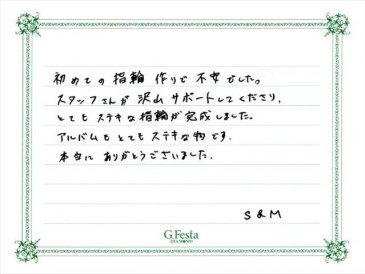 初めての指輪作りで不安でした。
スタッフさんが沢山サポートしてくださり、
とてもステキな指輪が完成しました。
アルバムもとてもステキな物です。
本当にありがとうございました。
S & M
G.Festa
DIAMOND